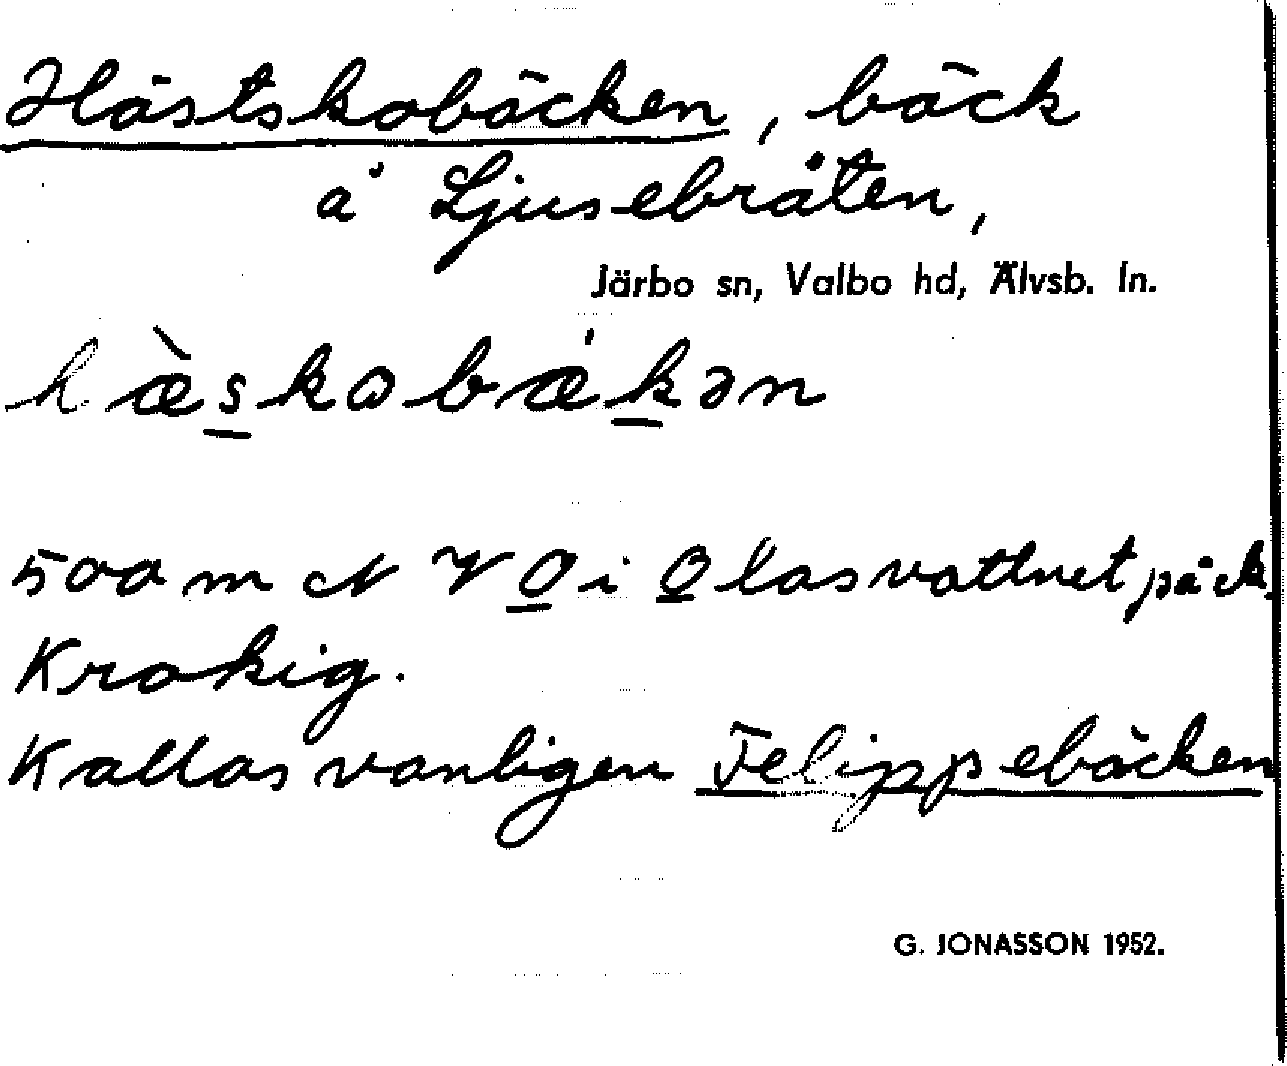 Hästskobäcken, bäck
å Ljusebråten,
Järbo sn, Valbo hd, Älvsb. ln.
hæ̀skɷbǽkən
500 m N V O i Olasvattnet på ek.
Krokig.
Kallas vanligen Felippebäcken
G. JONASSON 1952.